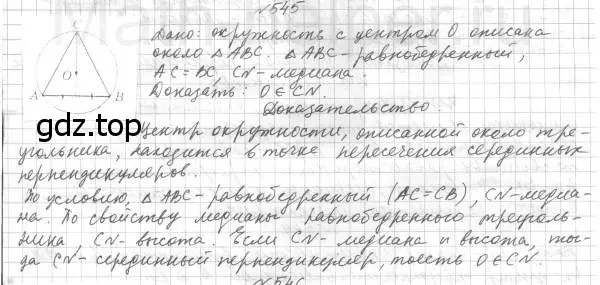 №545
C
O
A
B
Дано: окружность с центром O описана
около △ABC. △ABC - равнобедренный,
AC=BC, CN - медиана.
Доказать: O∈CN.
Доказательство.
gdz.top
Центр окружности, описанной около тре-
угольника, находится в точке пересечения серединных
перпендикуляров.
По условию, △ABC - равнобедренный (AC=CB), CN - медиа-
на. По свойству медианы равнобедренного треуголь-
ника, CN - высота. Если CN - медиана и высота, то-
да CN - серединный перпендикуляр, тоесть O∈CN.
№546